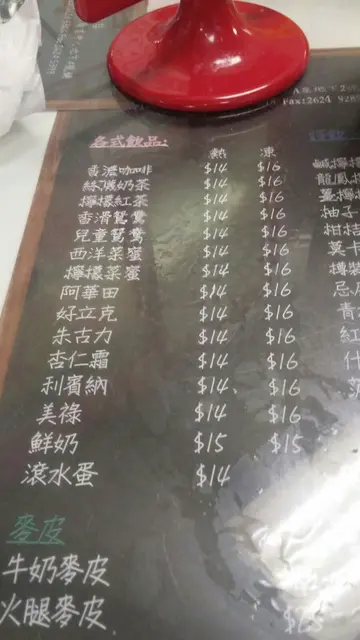 Fax:2624 928
各式飲品:
熱 凍
香濃咖啡 $14 $16
絲襪奶茶 $14 $16
檸檬紅茶 $14 $16
香滑鴛鴦 $14 $16
兒童鴛鴦 $14 $16
西洋菜蜜 $14 $16
檸檬菜蜜 $14 $16
阿華田 $14 $16
好立克 $14 $16
朱古力 $14 $16
杏仁霜 $14 $16
利賓納 $14 $16
美祿 $14 $16
鮮奶 $15 $15
滾水蛋 $14
麥皮
牛奶麥皮
火腿麥皮
鹹檸
龍鳳檸
薑檸
柚子
柑桔